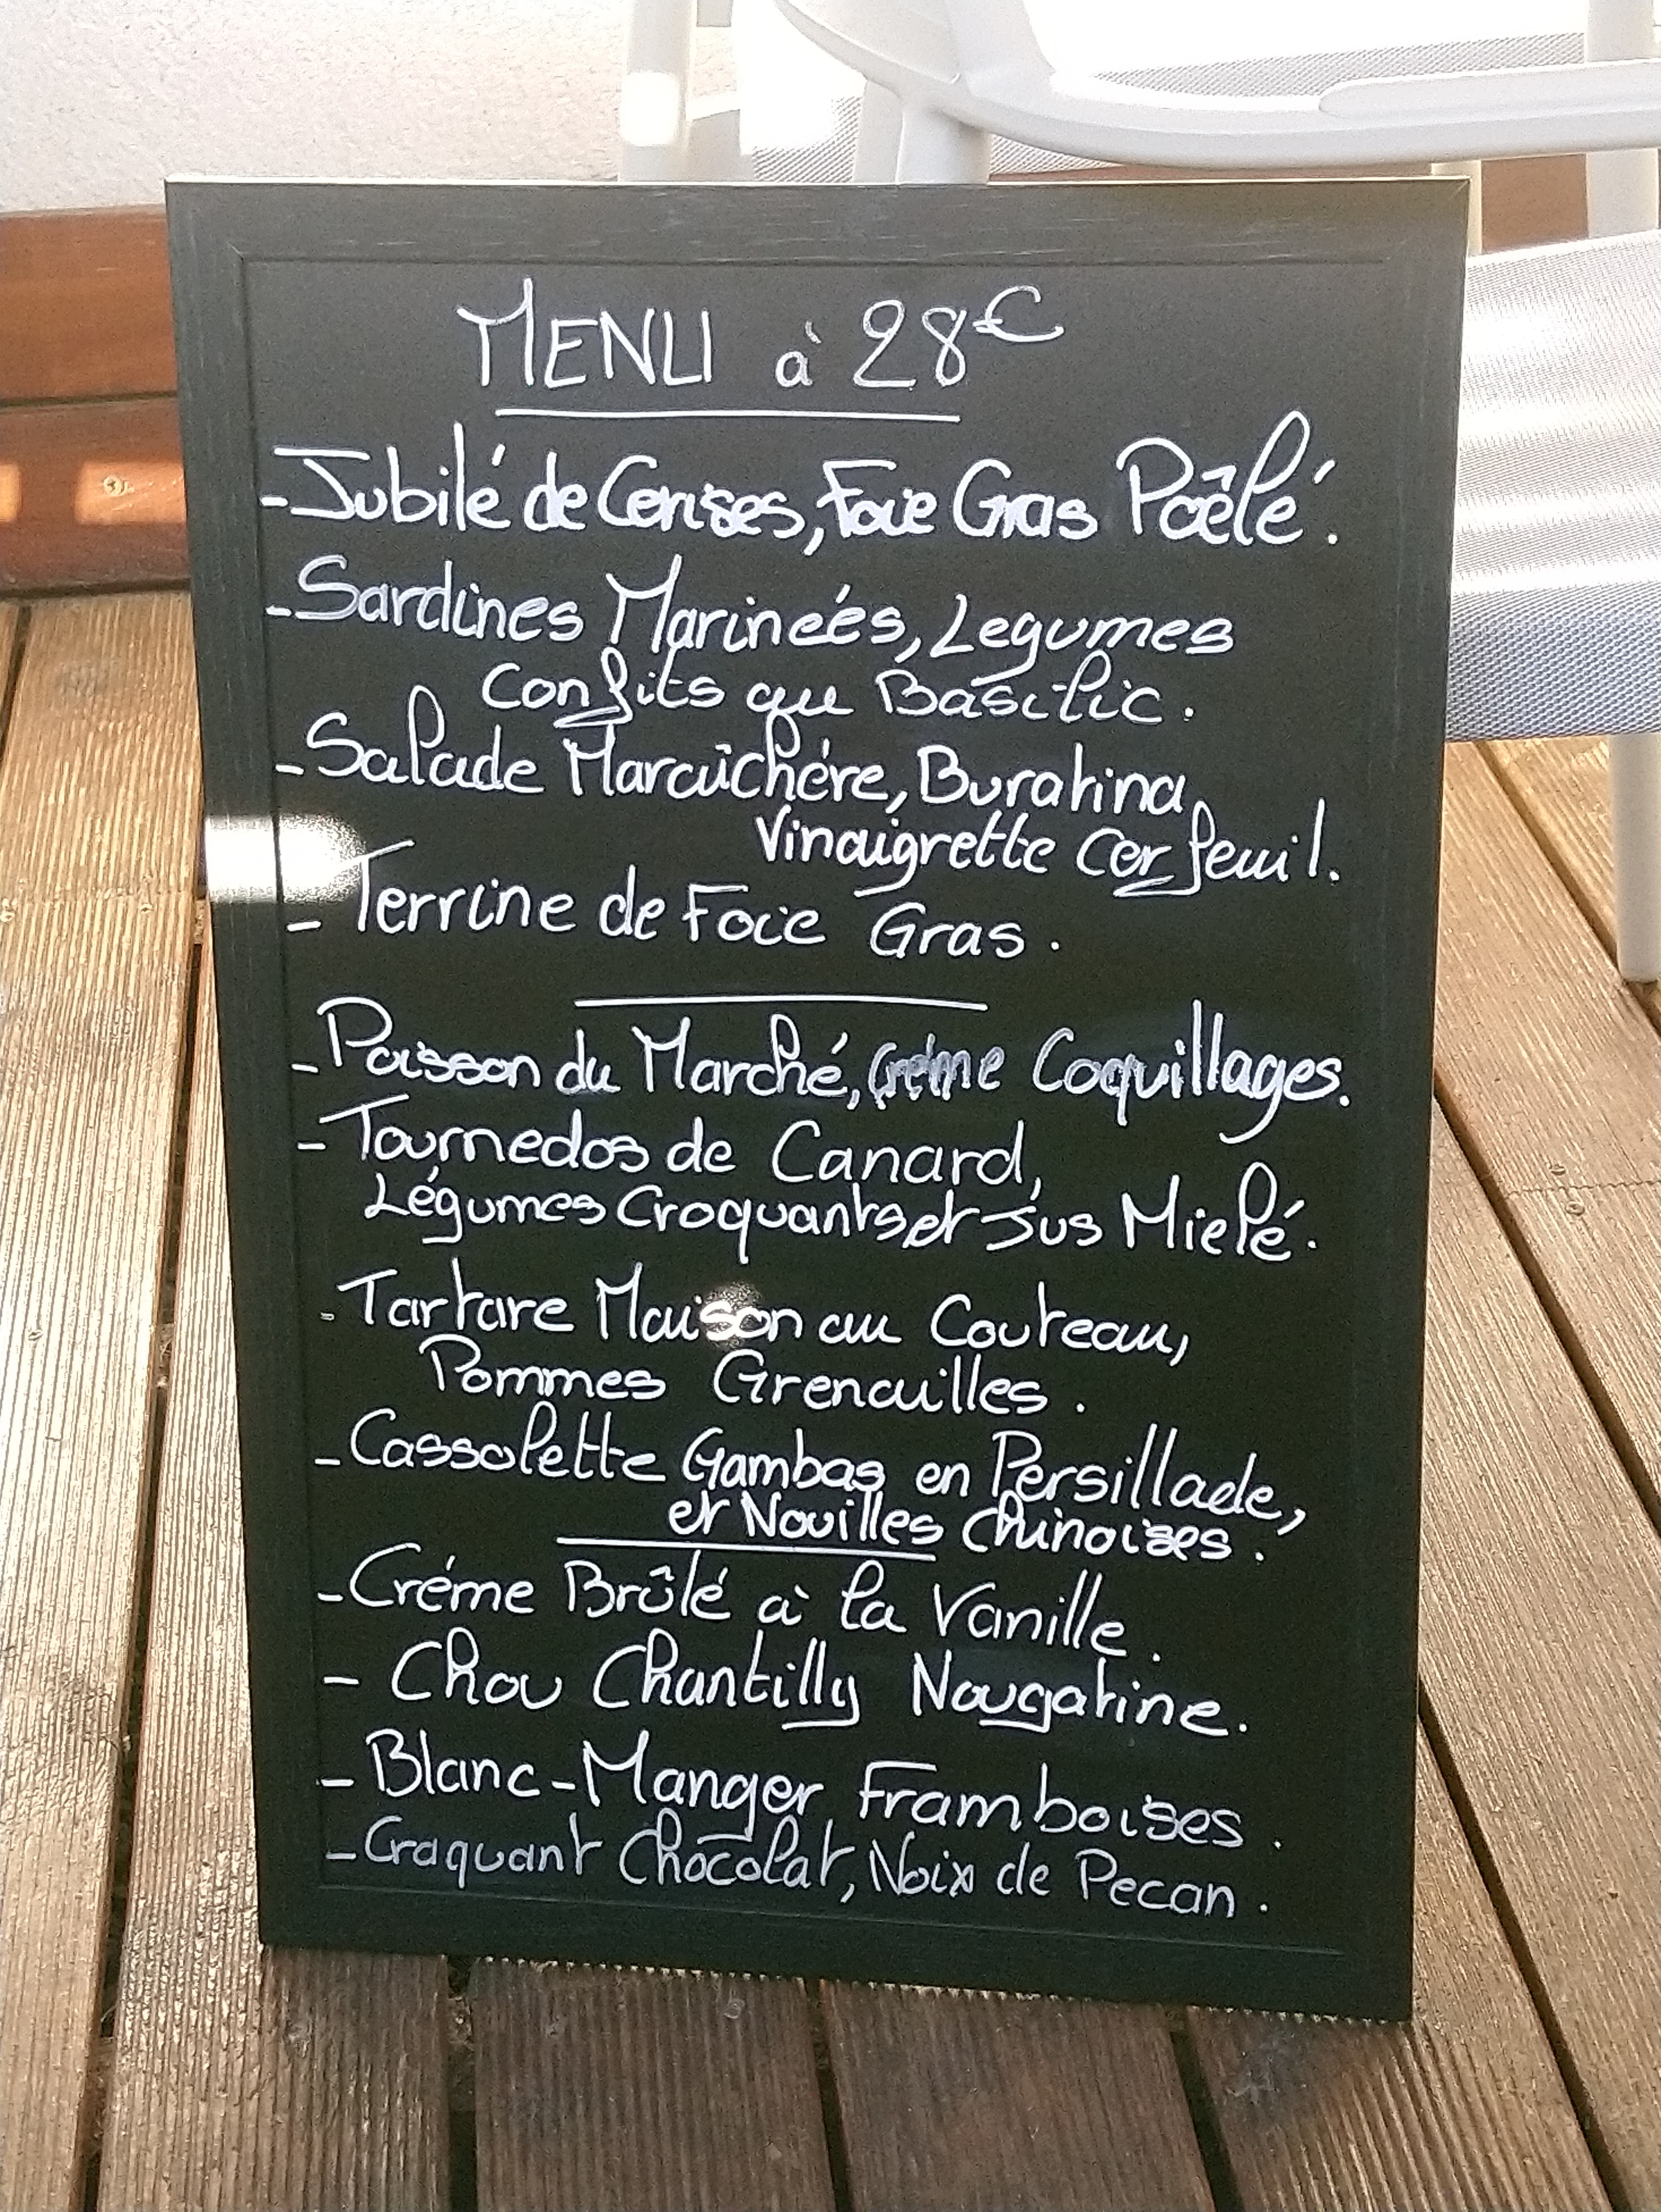 MENU à 28€
- Jubilé de Cerises, Foie Gras Poêlé.
- Sardines Marineés, Legumes
Confits au Basilic.
- Salade Maraîchére, Buratina,
Vinaigrette Cerfeuil.
- Terrine de Foie Gras.
- Poisson du Marché, Créme Coquillages.
- Tournedos de Canard,
Légumes Croquants et Jus Miélé.
- Tartare Maison au Couteau,
Pommes Grenailles.
- Cassolette Gambas en Persillade,
et Nouilles Chinoises.
- Créme Brûlé à la Vanille.
- Chou Chantilly Nougatine.
- Blanc-Manger Framboises.
- Craquant Chocolat, Noix de Pecan.